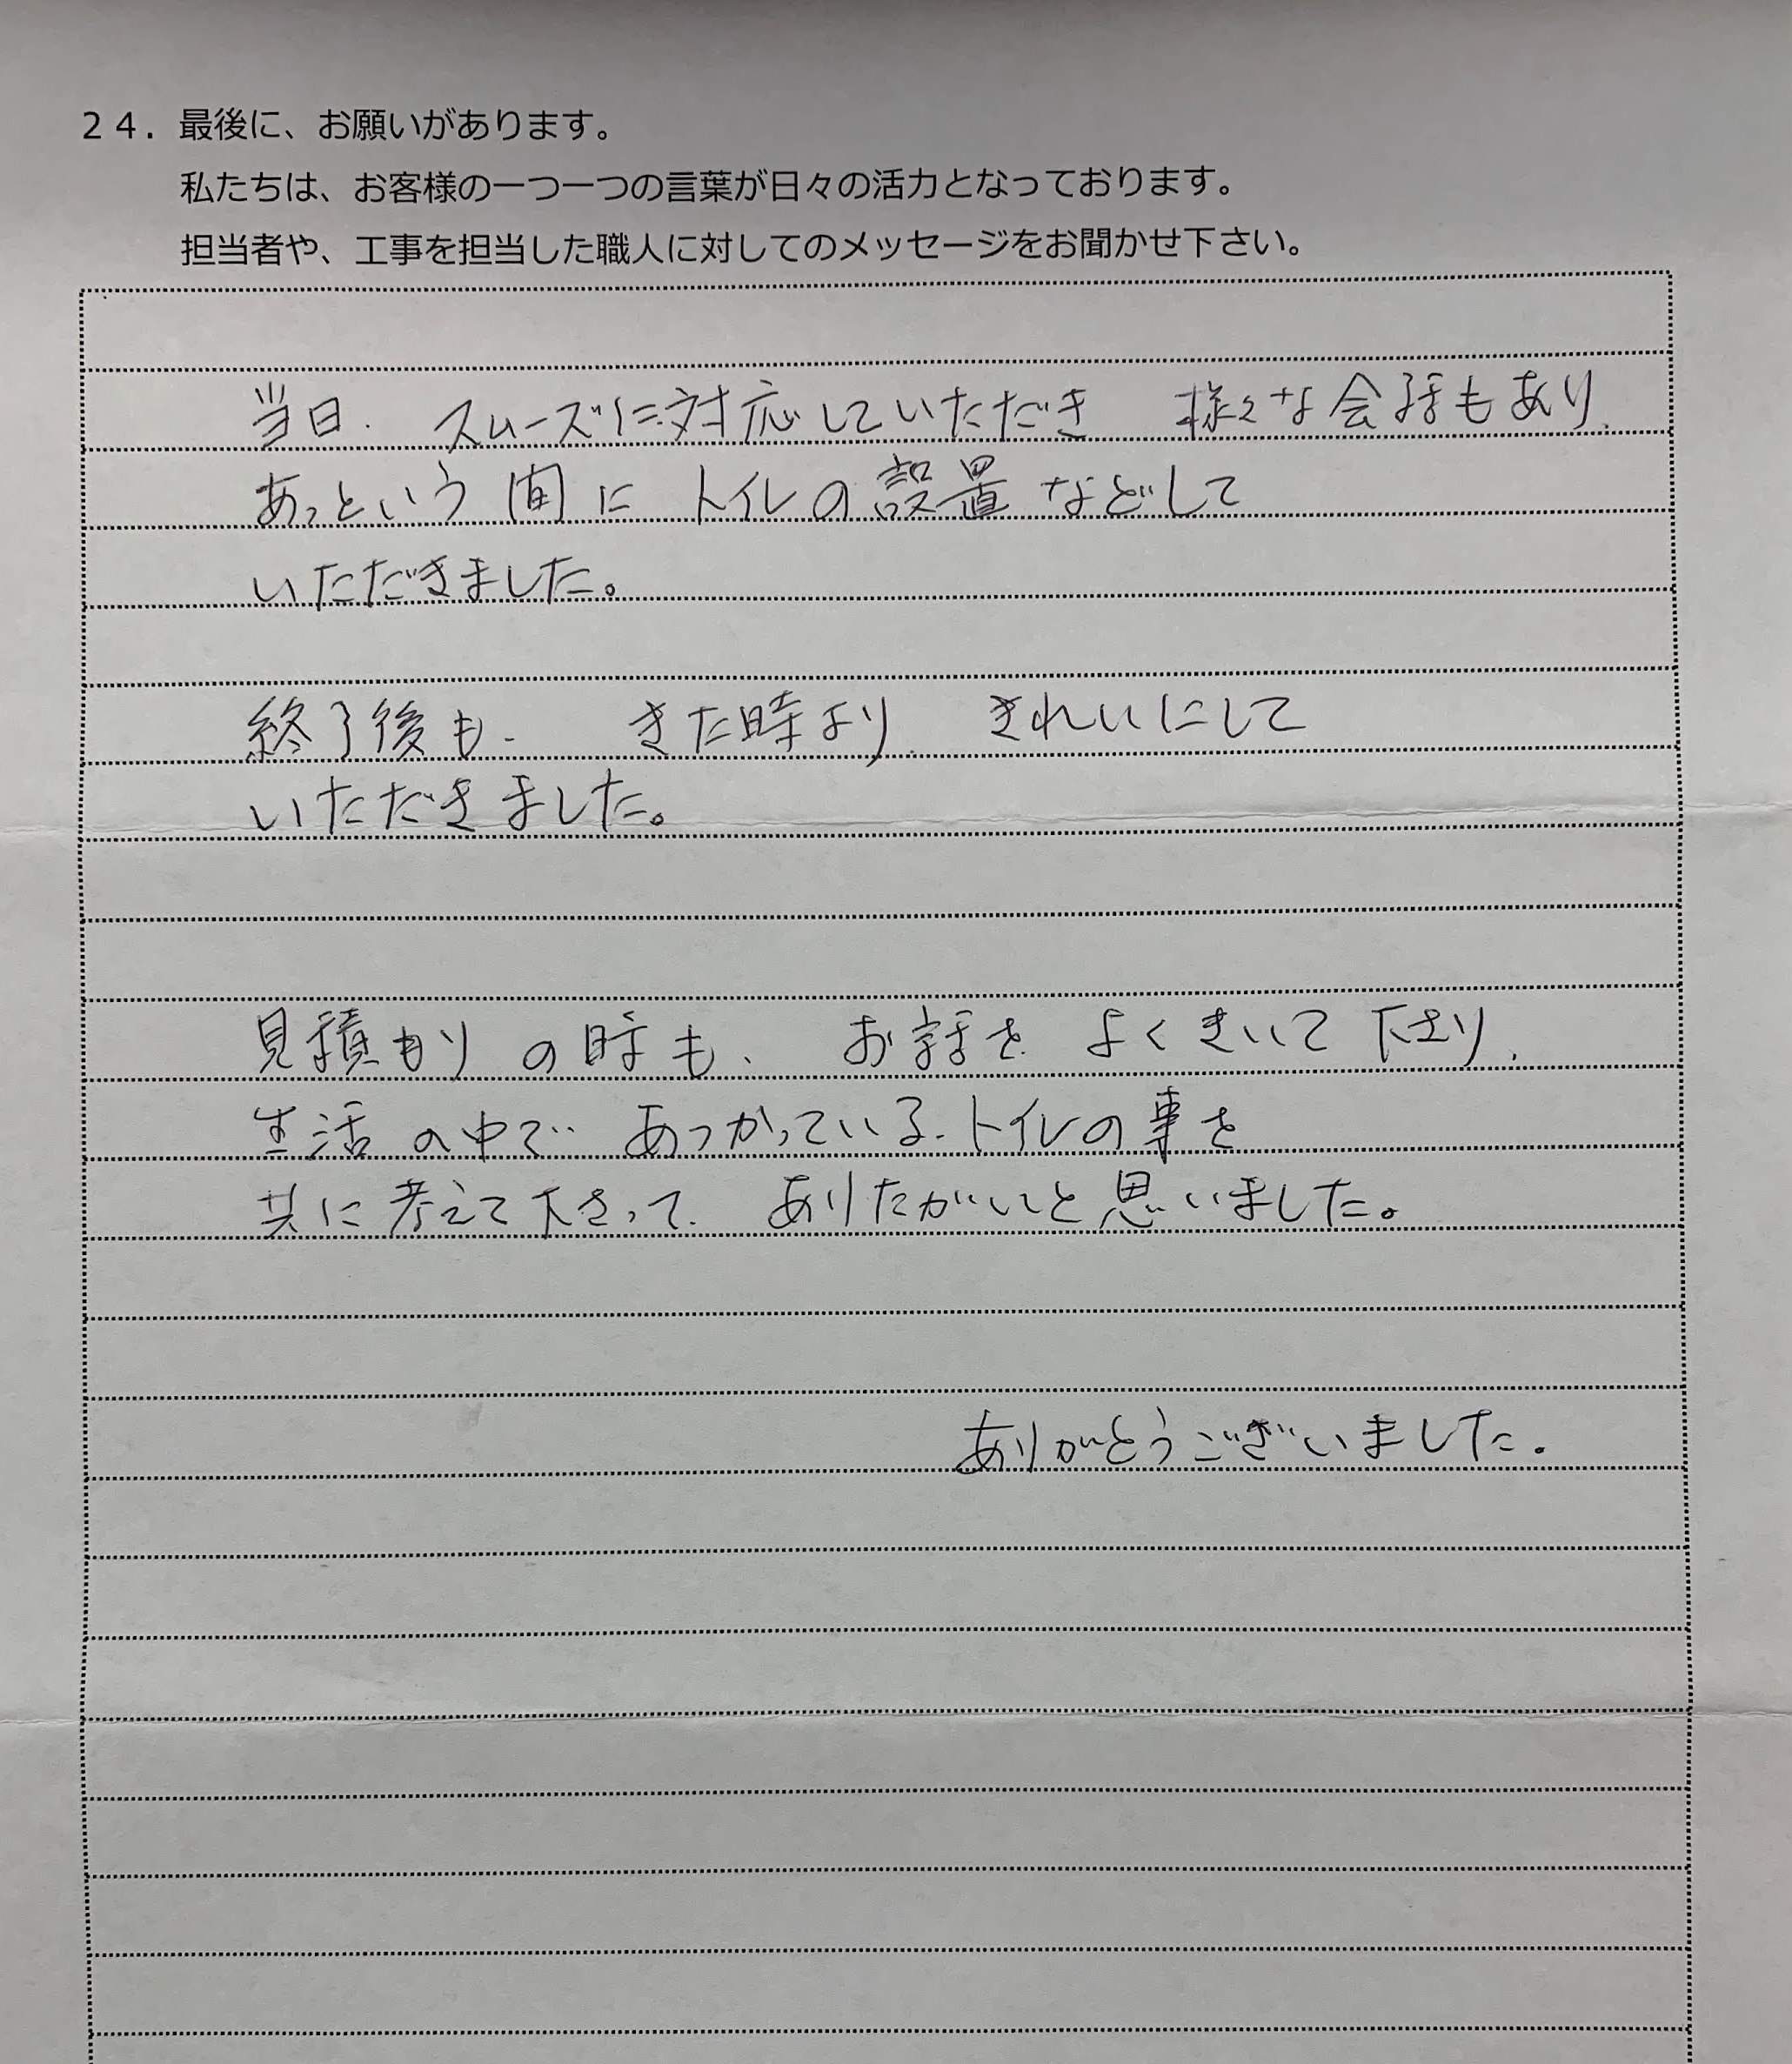 24. 最後に、お願いがあります。
私たちは、お客様の一つ一つの言葉が日々の活力となっております。
担当者や、工事を担当した職人に対してのメッセージをお聞かせ下さい。
当日、スムーズに対応していただき 様々な会話もあり、
あっという間に トイレの設置などして
いただきました。
終了後も、 きた時より、きれいにして
いただきました。
見積もりの時も、 お話を よくきいて下さり、
生活の中で あつかっている、トイレの事を
共に考えて下さって、ありたがいと思いました。
ありがとうございました。